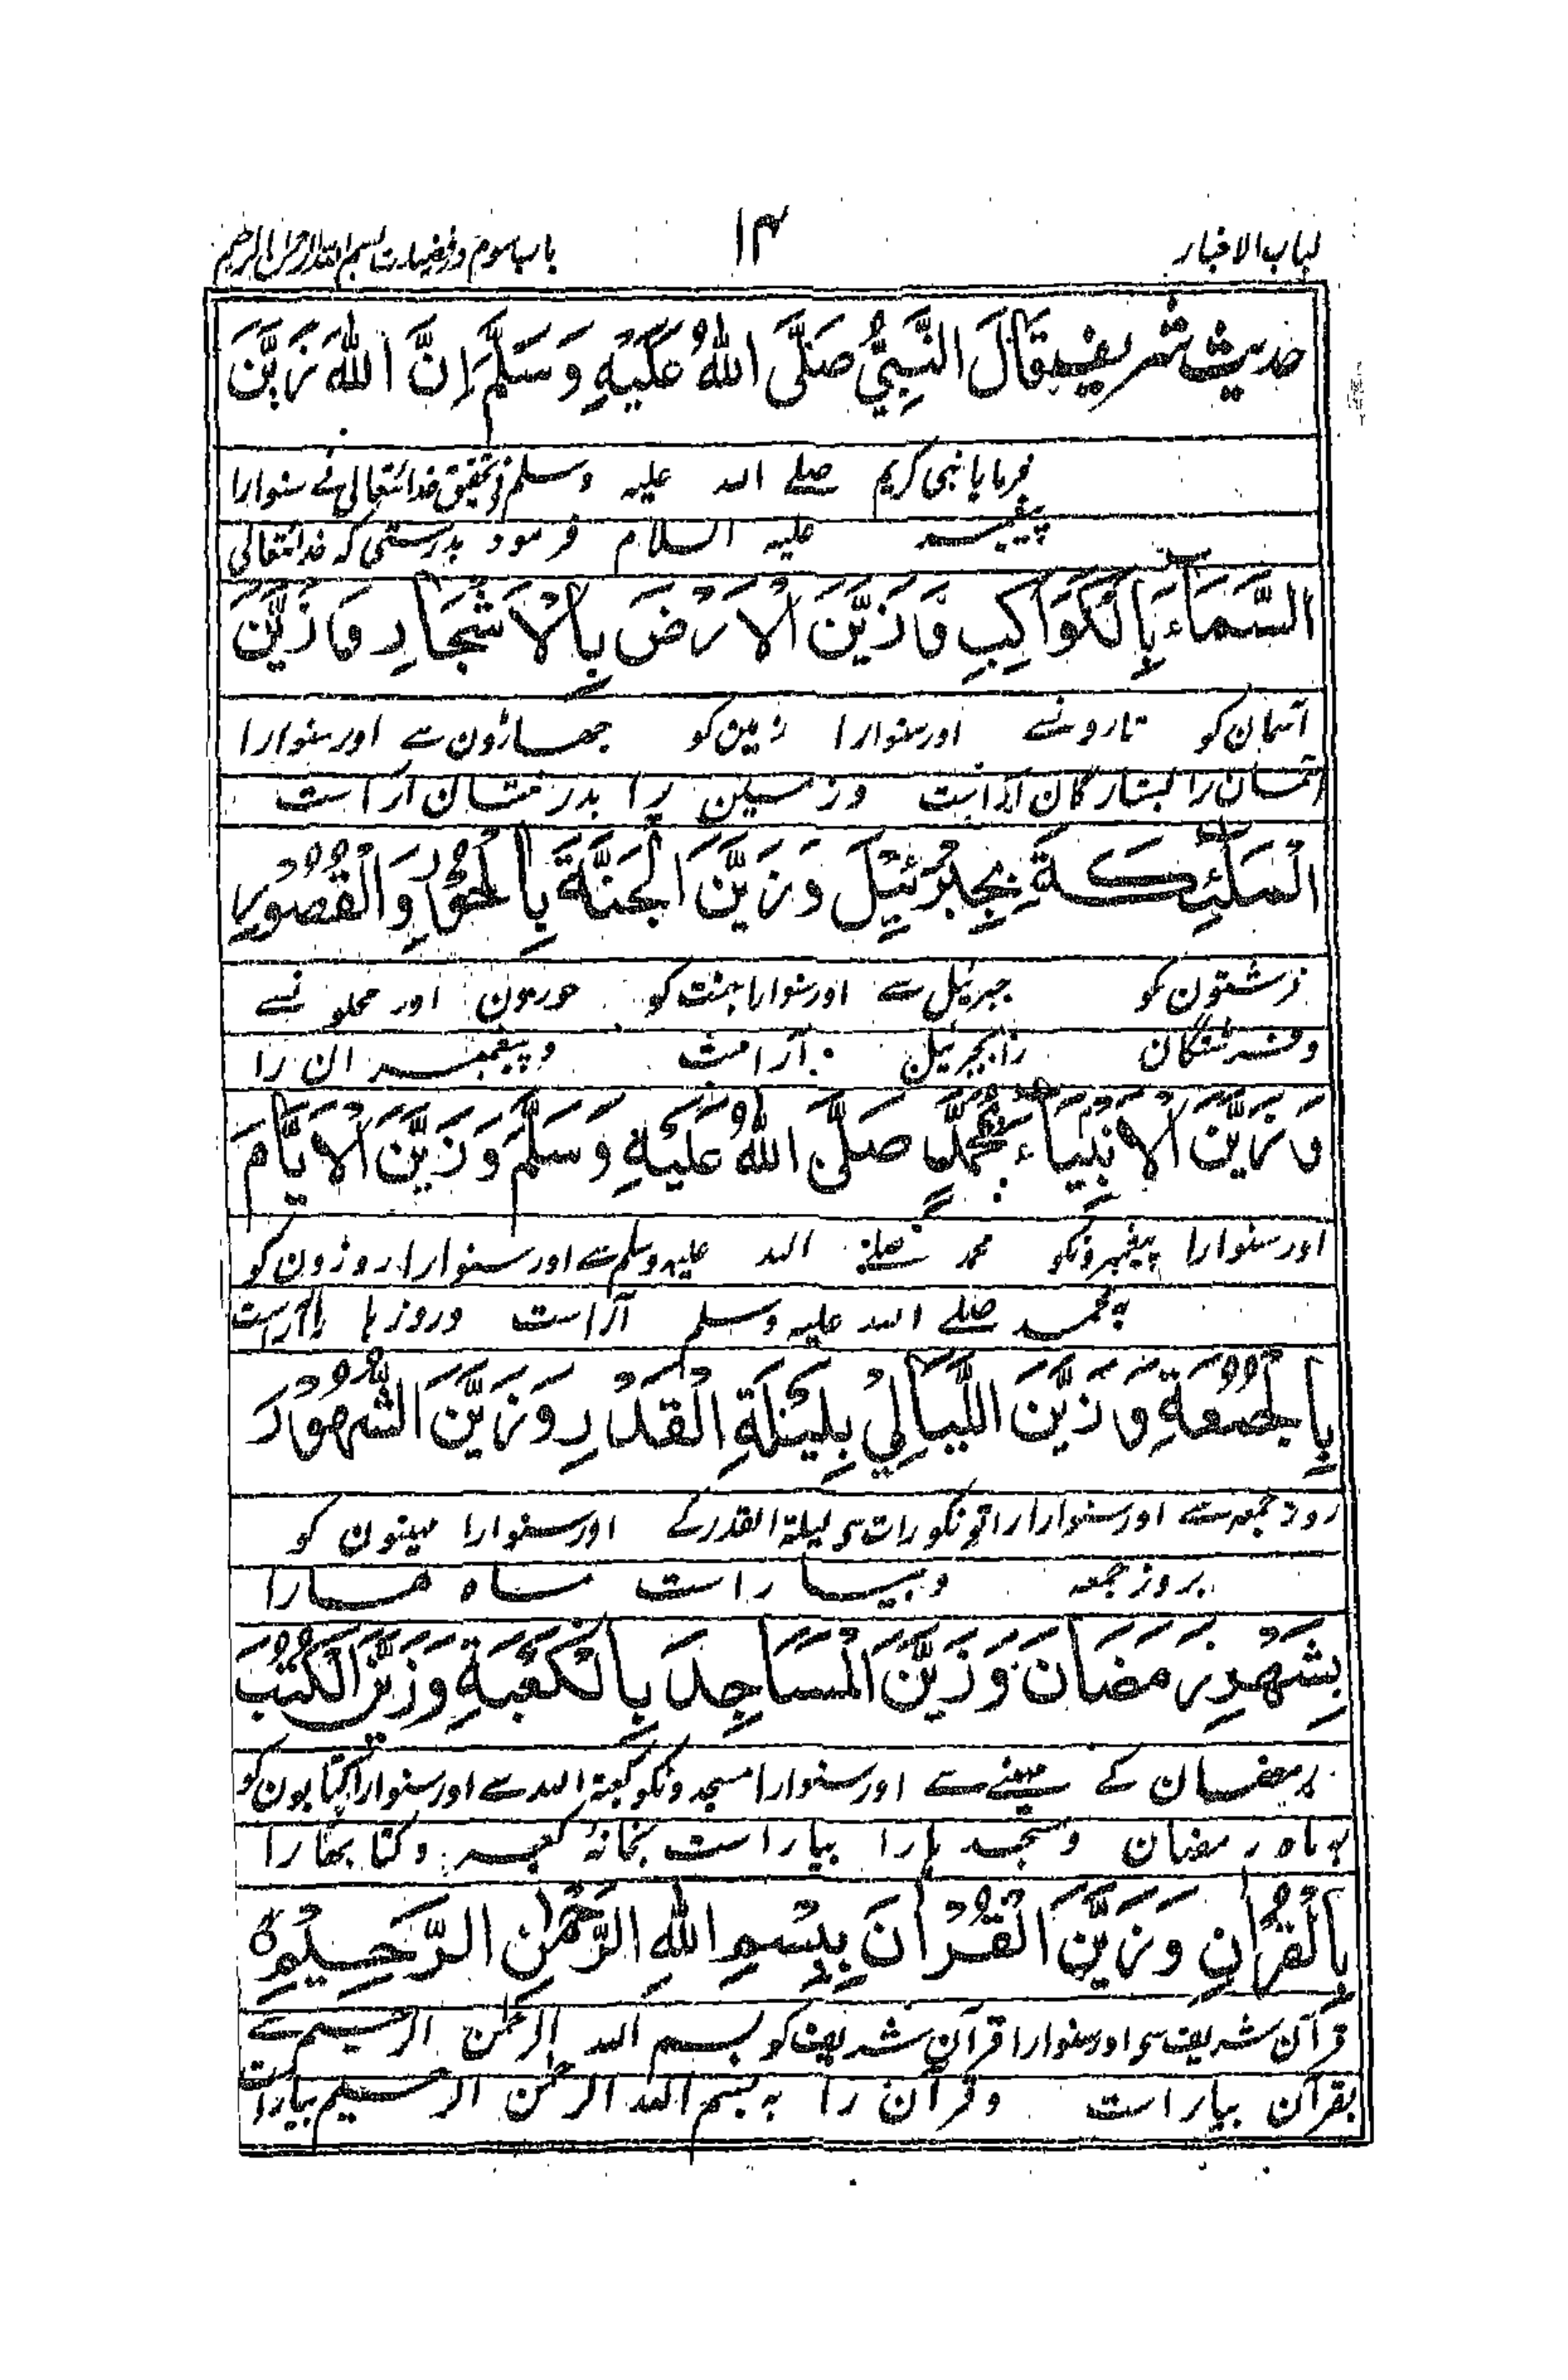 لباب الاخبار ۱۴ باب سوم در فضیلت بسم اللہ الرحمن الرحیم
حدیث شریف قَالَ النَّبِيُّ صَلَّى اللهُ عَلَيْهِ وَسَلَّمَ اِنَّ اللهَ زَيَّنَ
فرمایا نبی کریم صلے اللہ علیہ وسلم نے تحقیق خدائتعالی نے سنوارا
پیغمبر علیہ السلام فرمود بدرستی کہ خدائتعالی
السَّمَاءَ بِالْكَوَاكِبِ وَزَيَّنَ الْاَرْضَ بِالْاَشْجَارِ وَزَيَّنَ
آسمان کو تارونسے اور سنوارا زمین کو جھاڑون سے اور سنوارا
آسمان را بستارگان آراست و زمین را بدرختان آراست
الْمَلٰئِكَةَ بِجِبْرَئِيْلَ وَزَيَّنَ الْجَنَّةَ بِالْحُوْرِ وَالْقُصُوْرِ
فرشتون کو جبرئیل سے اور سنوارا جنت کو حورون اور محلونسے
و فرشتگان را بجبرئیل آراست و پیغمبران را
وَزَيَّنَ الْاَنْبِيَاءَ بِمُحَمَّدٍ صَلَّى اللهُ عَلَيْهِ وَسَلَّمَ وَزَيَّنَ الْاَيَّامَ
اور سنوارا پیغمبرونکو محمد صلے اللہ علیہ وسلم سے اور سنوارا روزون کو
بہ محمد صلے اللہ علیہ وسلم آراست و روزہا را آراست
بِالْجُمُعَةِ وَزَيَّنَ اللَّيَالِيْ بِلَيْلَةِ الْقَدْرِ وَزَيَّنَ الشُّهُوْرَ
روز جمعہ سے اور سنوارا راتونکو رات سے لیلۃ القدر کے اور سنوارا مہینون کو
بروز جمعہ و بیاراست ماہ ہارا
بِشَهْرِ رَمَضَانَ وَزَيَّنَ الْمَسَاجِدَ بِالْكَعْبَةِ وَزَيَّنَ الْكُتُبَ
رمضان کے مہینے سے اور سنوارا مسجدونکو کعبۃ اللہ سے اور سنوارا کتابون کو
بہ ماہ رمضان و مسجد ہارا بیاراست بخانۂ کعبہ و کتابہارا
بِالْقُرْاٰنِ وَزَيَّنَ الْقُرْاٰنَ بِبِسْمِ اللهِ الرَّحْمٰنِ الرَّحِيْمِ ۵
قرآن شریف سے اور سنوارا قرآن شریف کو بسم اللہ الرحمٰن الرحیم سے
بقرآن بیاراست و قرآن را بہ بسم اللہ الرحمٰن الرحیم بیاراست